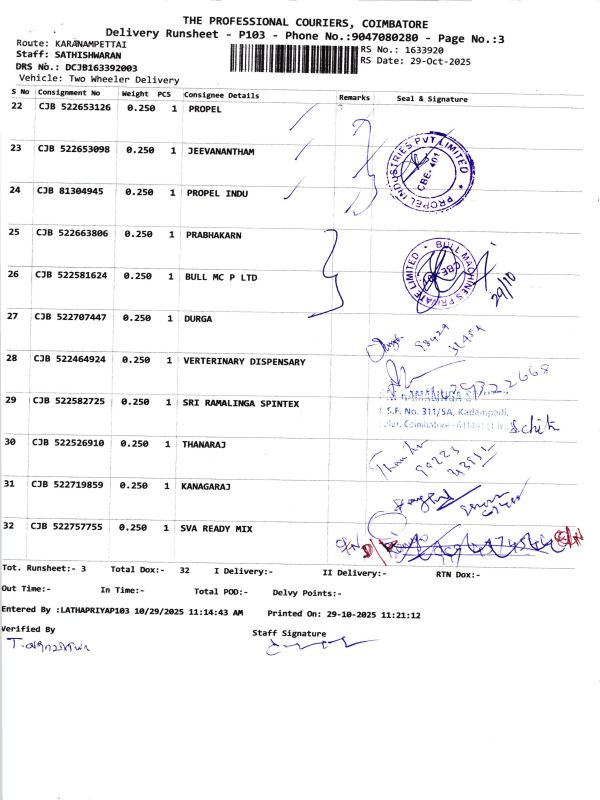 THE PROFESSIONAL COURIERS, COIMBATORE
Delivery Runsheet - P103 - Phone No.:9047080280 - Page No.:3
Route: KARANAMPETTAI
Staff: SATHISHWARAN
DRS No.: DCJB163392003
Vehicle: Two Wheeler Delivery
RS No.: 1633920
RS Date: 29-Oct-2025
S No Consignment No Weight PCS Consignee Details Remarks Seal & Signature
22 CJB 522653126 0.250 1 PROPEL
23 CJB 522653098 0.250 1 JEEVANANTHAM
24 CJB 81304945 0.250 1 PROPEL INDU
PROPEL INDUSTRIES PVT LIMITED
CBE- 401
25 CJB 522663806 0.250 1 PRABHAKARN
26 CJB 522581624 0.250 1 BULL MC P LTD
BULL MACHINES PRIVATE LIMITED
29/10
27 CJB 522707447 0.250 1 DURGA
28 CJB 522464924 0.250 1 VERTERINARY DISPENSARY
29 CJB 522582725 0.250 1 SRI RAMALINGA SPINTEX
S.F. No. 311/5A, Kadampadi,
30 CJB 522526910 0.250 1 THANARAJ
31 CJB 522719859 0.250 1 KANAGARAJ
32 CJB 522757755 0.250 1 SVA READY MIX
Tot. Runsheet:- 3 Total Dox:- 32 I Delivery:- II Delivery:- RTN Dox:-
Out Time:- In Time:- Total POD:- Delvy Points:-
Entered By :LATHAPRIYAP103 10/29/2025 11:14:43 AM Printed On: 29-10-2025 11:21:12
Verified By
Staff Signature